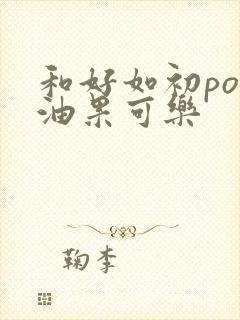 和好如初po
油果可樂
鞠李